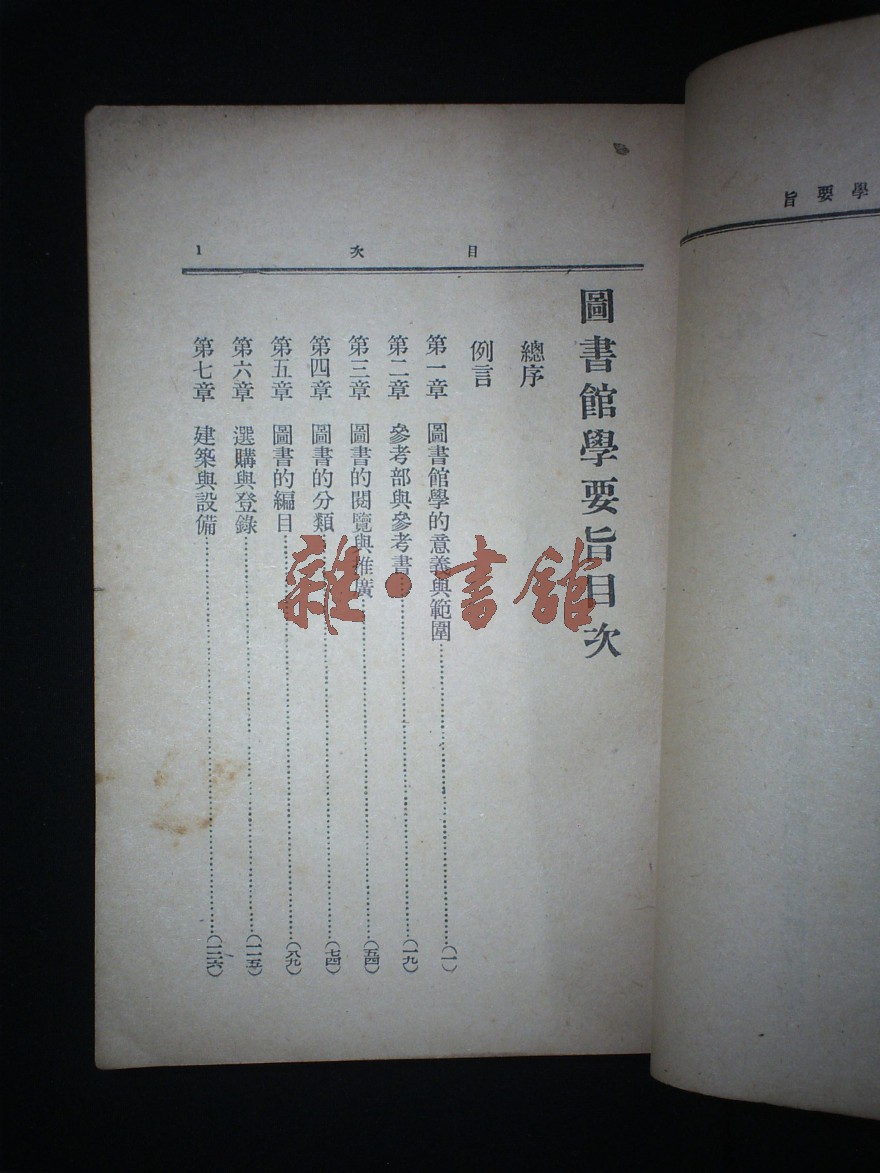 學要旨
目次 1
圖書館學要旨目次
總序
例言
第一章 圖書館學的意義與範圍……(一)
第二章 參考部與參考書……(一九)
第三章 圖書的閱覽與推廣……(五四)
第四章 圖書的分類……(七四)
第五章 圖書的編目……(八九)
第六章 選購與登錄……(一一五)
第七章 建築與設備……(一二六)
雜·書館